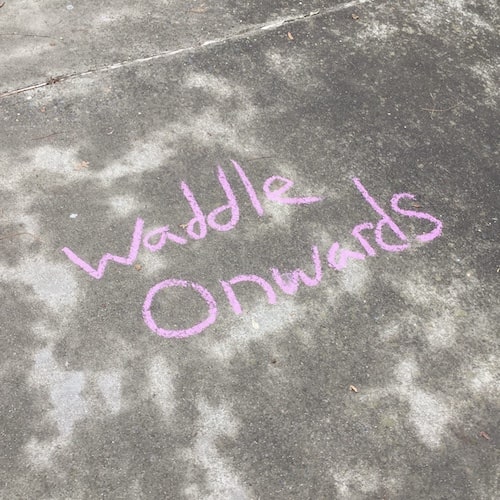 Waddle
Onwards